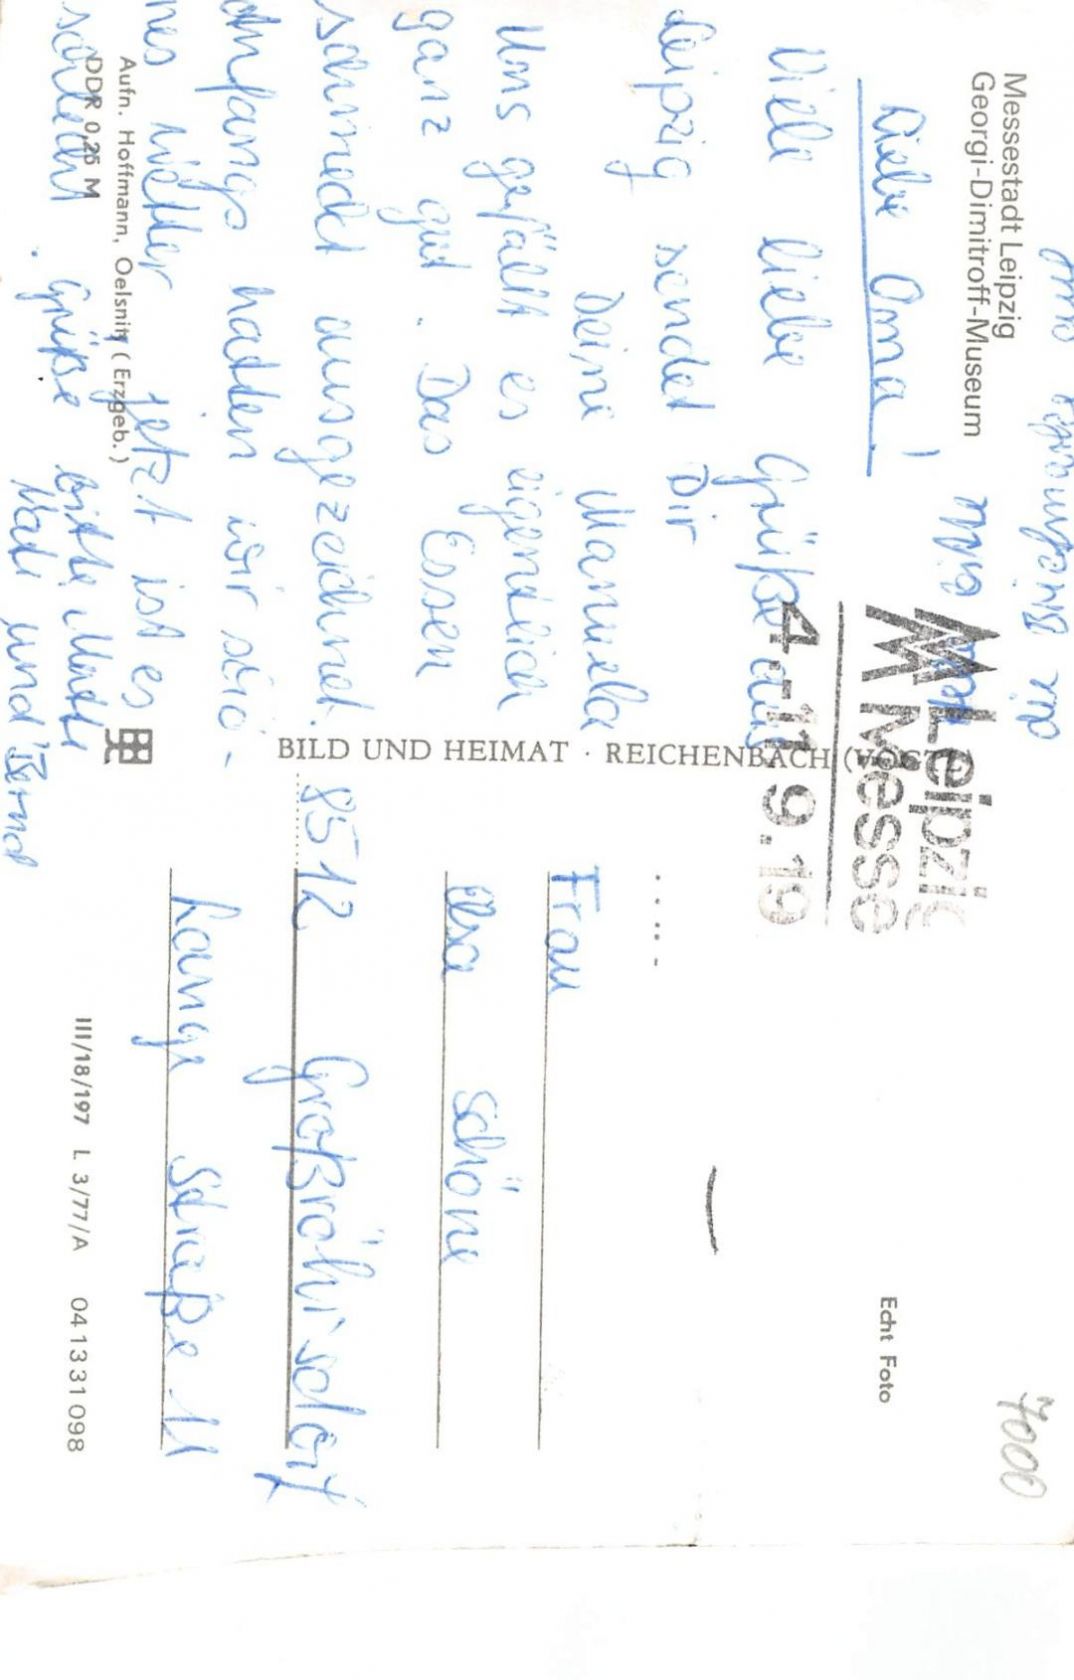 Messestadt Leipzig
Georgi-Dimitroff-Museum
Liebe Oma!
Viele liebe Grüße aus
Leipzig sendet Dir
Deine Manuela
Uns gefällt es eigendlich
ganz gut. Das Essen
schmeckt ausgezeichnet.
Anfangs hatten wir schö-
nes Wetter jetzt ist es
schlecht. Grüße bitte Mutti
Vati und Bernd
Aufn. Hoffmann, Oelsnitz (Erzgeb.)
DDR 0,25 M
BILD UND HEIMAT · REICHENBACH (VOGTL)
MM Leipzig
Messe
4-11 9.19
Echt Foto
7000
Frau
Elsa Schöne
8512 Großröhrsdorf
Lange Straße 11
III/18/197 L 3/77/A 041331098